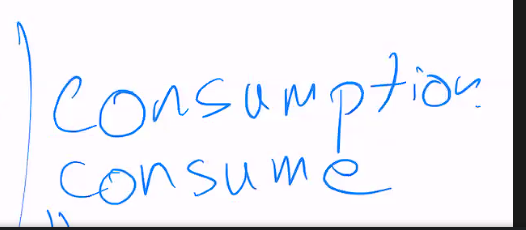 consumption
consume